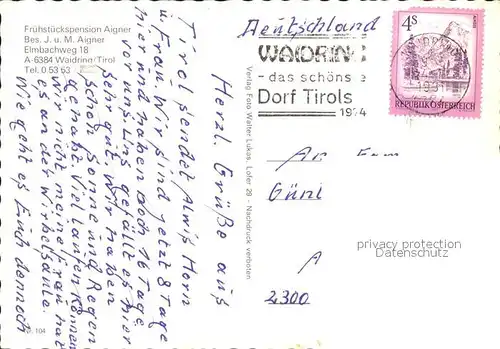 Frühstückspension Aigner
Bes. J. u. M. Aigner
Elmbachweg 18
A-6384 Waidring/Tirol
Tel. 0 53 53
Herzl. Grüße aus
Tirol sendet Alwis Horn
u. Frau. Wir sind jetzt 8 Tage
hier und haben noch 16 Tage
vor uns. Uns gefällt es hier
sehr gut. Wir haben
schon Sonne und Regen
gehabt. Viel laufen können
wir nicht meine Frau hat
es an der Wirbelsäule.
Wie geht es Euch dennoch
104
Verlag Foto Walter Lukos, Lofer 29 - Nachdruck verboten
Deutschland
WAIDRING
- das schönste
Dorf Tirols
4S
REPUBLIK ÖSTERREICH
An
Günt
A
2300
privacy protection
Datenschutz